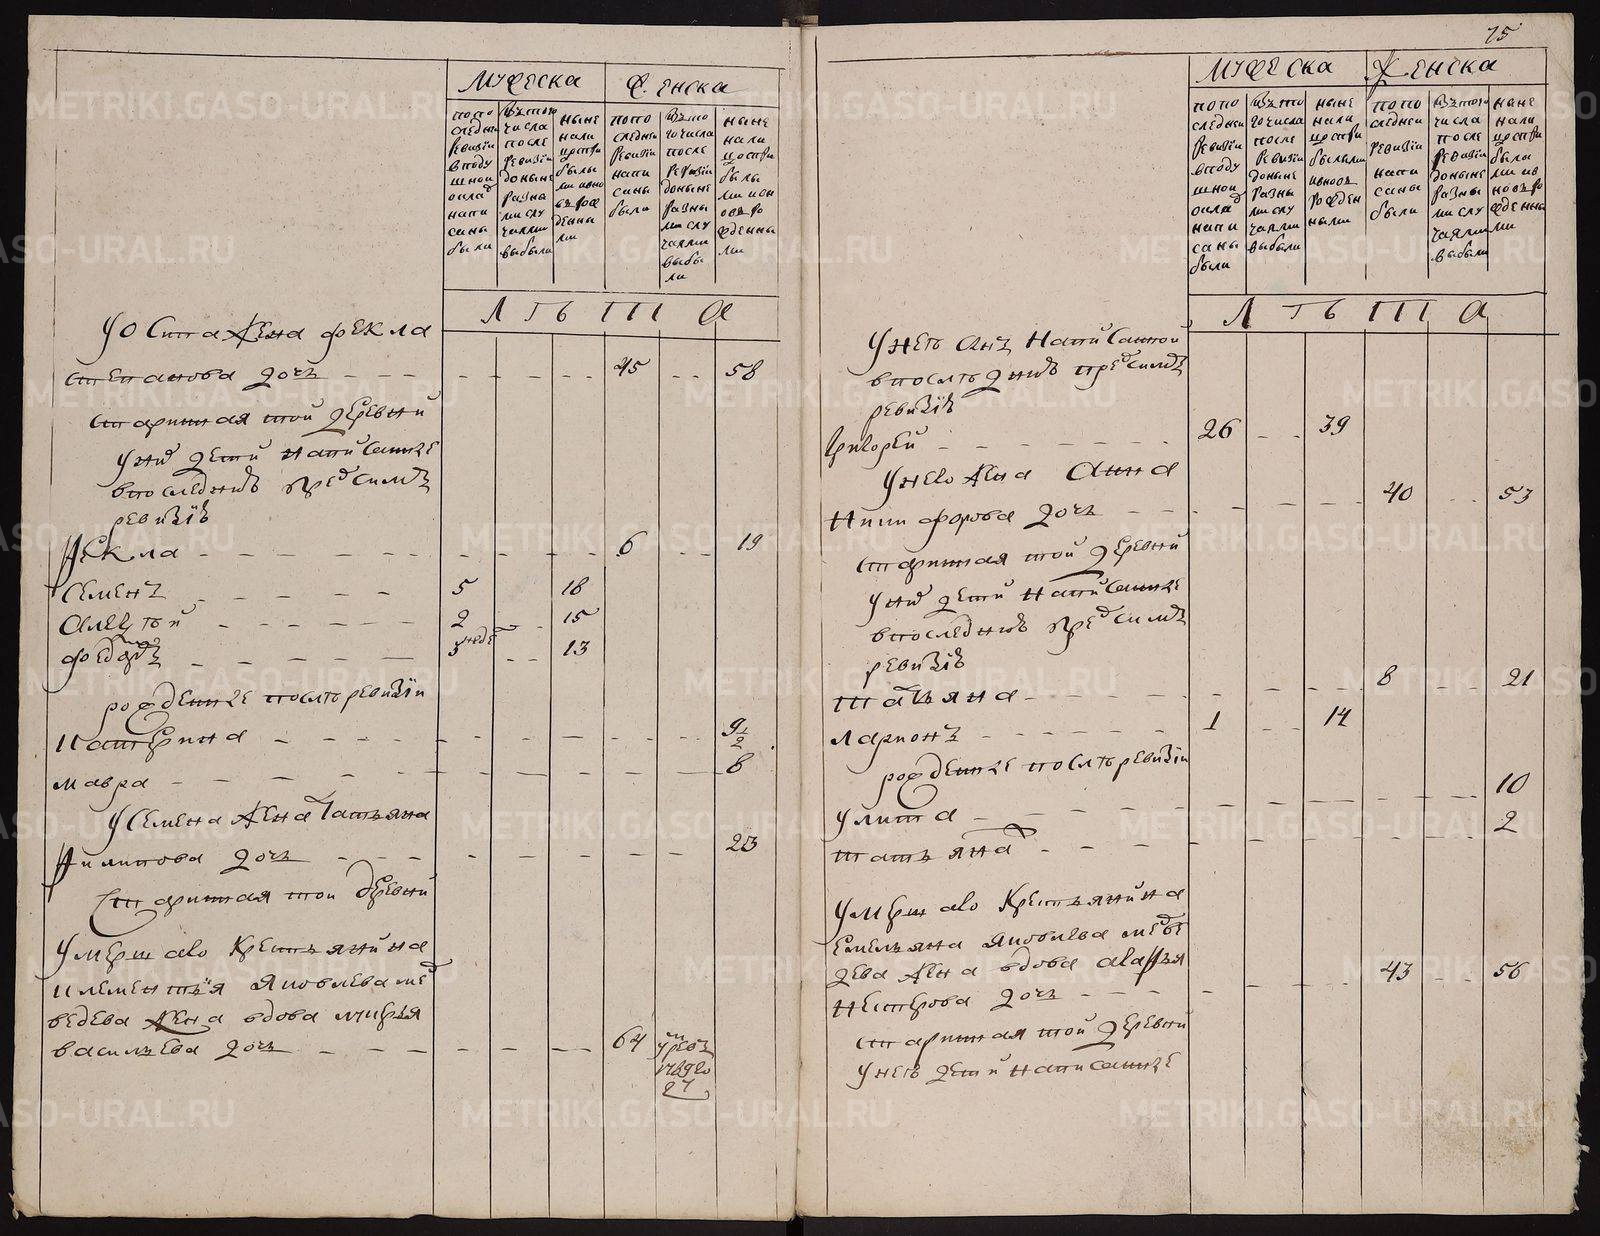 75
мужеска
женска
попо следней ревизiи вподу шной оклад напи саны были
изтого числа после ревизiи доныне разны ми слу чаями выбыли
ныне нали цо при былы ми ивно въ рож денны ми
попо следней ревизiи напи саны были
изто го числа после ревизiи доныне разны ми слу чаями выбы ли
ныне нали цо спри былы ми ивн овъ ро жденны ми
Л ѣ т а
у оси па жена фекла
степанова дочь 45 58
старинная той деревни
у них дети написанные
впоследней пред сим
ревизiи
фекла 6 19
семенъ 5 18
алеѯѣй 2 15
федоръ 13
рожденные послѣ ревизiи
катерина 9 1/2
мавра 8
у семена жена татьяна
филипова дочь 23
старинная той деревни
умершаго крестьянина
клементья яковлева мед
ведева жена вдова марья
васильева дочь 64
мужеска
женска
попо следней ревизiи вподу шной оклад напи саны были
изто го числа после ревизiи доныне разны ми слу чаями выбыли
ныне нали цо при былыми ивновь рожден ными
попо следней ревизiи напи саны были
изтого числа после ревизiи доныне разны ми слу чаями выбыли
ныне нали цо при былы ми ив новъ ро жденны ми
Л ѣ т а
у нею сын написанной
впослѣдней пред сим
ревизiи
григорей 26 39
у него жена анна
никифорова дочь 40 53
старинная той деревни
у них дети написанные
впоследней пред сим
ревизiи
татьяна 8 21
ларионъ 1 14
рожденные послѣ ревизiи
улита 10
татьяна 2
умершаго крестьянина
емельяна яковлева медве
дева жена вдова агафья
нестерова дочь 43 56
старинная той деревни
у нею дети написанные